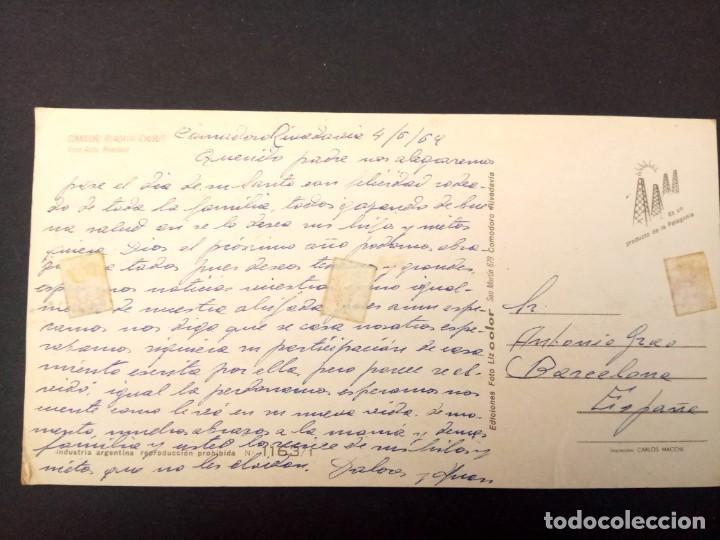 COMODORO RIVADAVIA (CHUBUT)
Comodoro Rivadavia 4/6/64
Querido padre nos alegraremos
pase el dia de su Santo con felicidad rodea
do de toda la familia, todos gozando de bue
na salud asi se lo desea su hija y nietos
quiera Dios el próximo año podamos abra
a todos pues deseos y grandes
noticias igual
de nuestra ahijada pues aun espe
ramos nos diga que se casa nosotros espe
rabamos siquiera su participación de casa
miento escrita por ella, pero parece se ol
vidó, igual la perdonamos esperamos nos
cuente como le va en su nueva vida. de mo
mento muchos abrazos a la mamá y demas
familia y usted lo que dice de sus hijos y
nietos que no les olvidan. Dolores y Juan
Industria argentina reproducción prohibida N° 1163/1
Ediciones Foto Liz color San Martín 679 Comodoro Rivadavia
Es un
producto de la Patagonia
Sr.
Antonio Grao
Barcelona
España
Impresión: CARLOS MACCHI
todocoleccion
todocoleccion.net